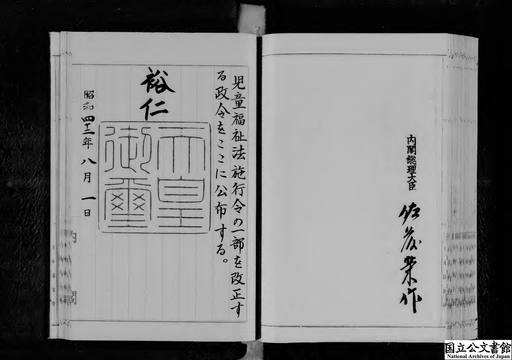 児童福祉法施行令の一部を改正す
る政令をここに公布する。
裕仁
天皇
御璽
昭和四十三年八月一日
内閣総理大臣
佐藤栄作
内閣
国立公文書館
National Archives of Japan